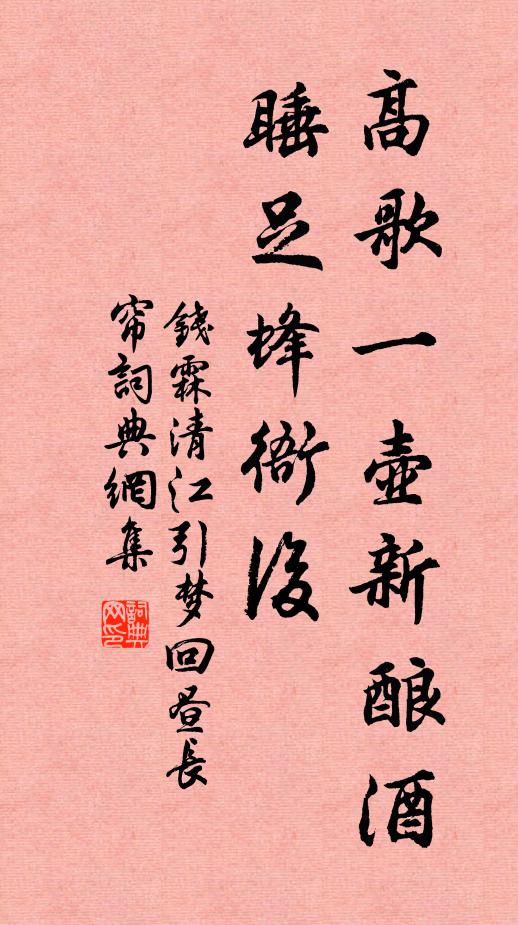 高歌一壺新酿酒
睡足蜂衙後
錢霖清江引梦回昼長
帘詞典網集
詞典
网印